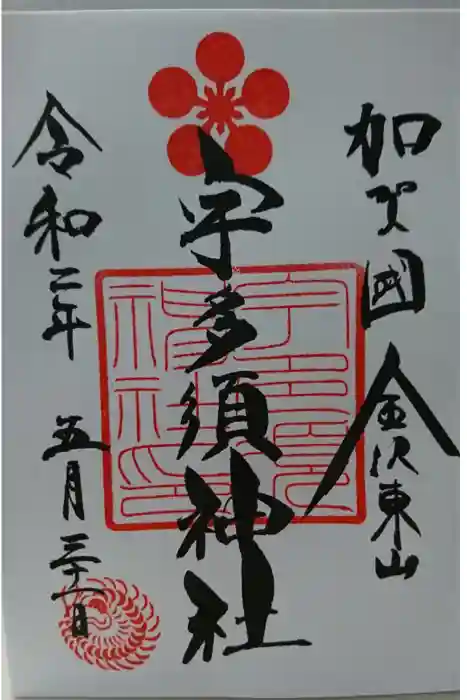 加賀國 金沢東山
宇多須神社
令和二年 五月三十一日